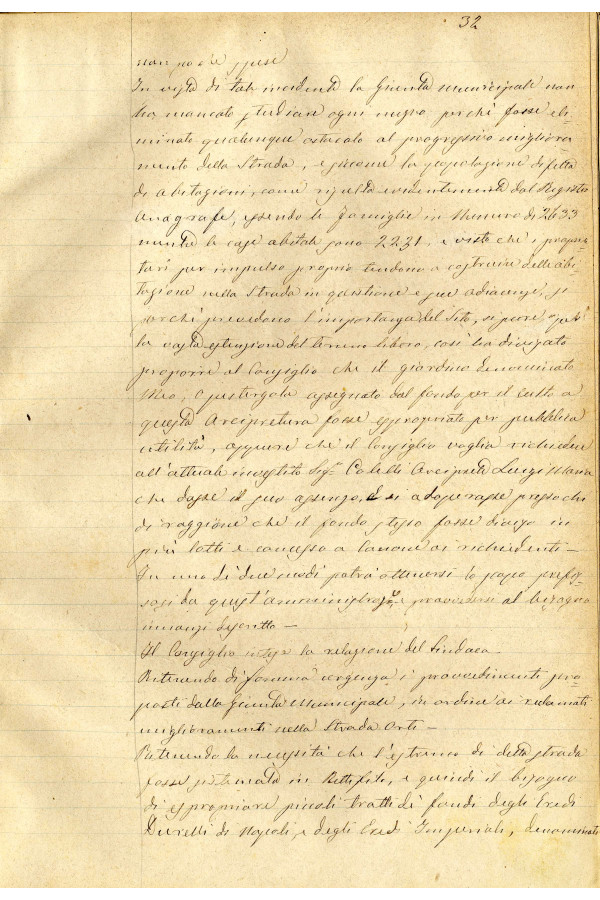 32
non po se spese
In vista di tale incidente la Giunta municipale non
ha mancato studiare ogni mezzo perché fosse eli-
minato qualunque ostacolo al progressivo migliora-
mento della Strada, e siccome la popolazione difetta
di abitazioni, come risulta evidentemente dal Registro
Anagrafe, essendo le famiglie in Numero di 2633
mentre le case abitate sono 2231, e visto che i proprie-
tari per impulso proprio tendono a costruire delle abi-
tazione nella Strada in questione e sue adiacenze, sì
perché prevedono l'importanza del Sito, sì pure
la vasta estensione del terreno libero, così ha divisato
proporre al Consiglio che il giardino denominato
o pastergola assegnato dal fondo per il culto a
questa Arcipretura fosse espropriato per pubblica
utilità, oppure che il Consiglio voglia richiedere
all'attuale investito Sigr Coletti Arciprete Luigi Maria
che dasse il suo assenzo, e si adoperasse presso chi
di raggione che il fondo stesso fosse diviso in
più lotti e concesso a Canone ai richiedenti —
In uno di due modi potrà ottenersi lo scopo prefis-
sosi da quest'amministraz.e e provvedersi al bisogno
innanzi descritto —
Il Consiglio intesa la relazione del Sindaco
Ritenendo di somma urgenza i provvedimenti pro-
posti dalla Giunta Municipale, in ordine ai reclamati
miglioramenti nella Strada Orti —
Ritenendo la necessità che l'estremo di detta strada
fosse sistemata in Rettifilo, e quindi il bisogno
di espropriare piccoli tratti di fondi degli Eredi
di Napoli, e degli Eredi Imperiali, denominati